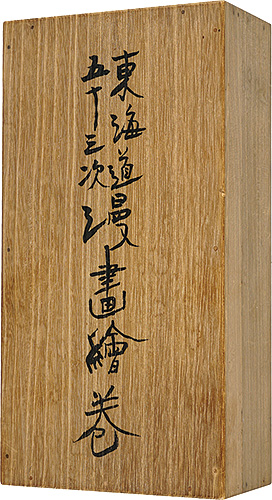 東海道
五十三次
漫畫繪卷